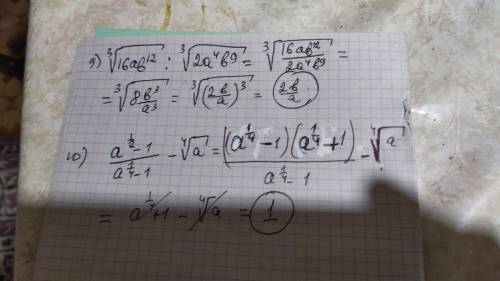 9) ∛(16ab¹²) : ∛(2a⁴b⁹) = ∛(16ab¹²/2a⁴b⁹) =
= ∛(8b³/a³) = ∛((2b/a)³) = 2b/a
10) (a^(1/2) - 1)/(a^(1/4) - 1) - ∜a = ((a^(1/4) - 1)(a^(1/4) + 1))/(a^(1/4) - 1) - ∜a
= a^(1/4) + 1 - ∜a = 1